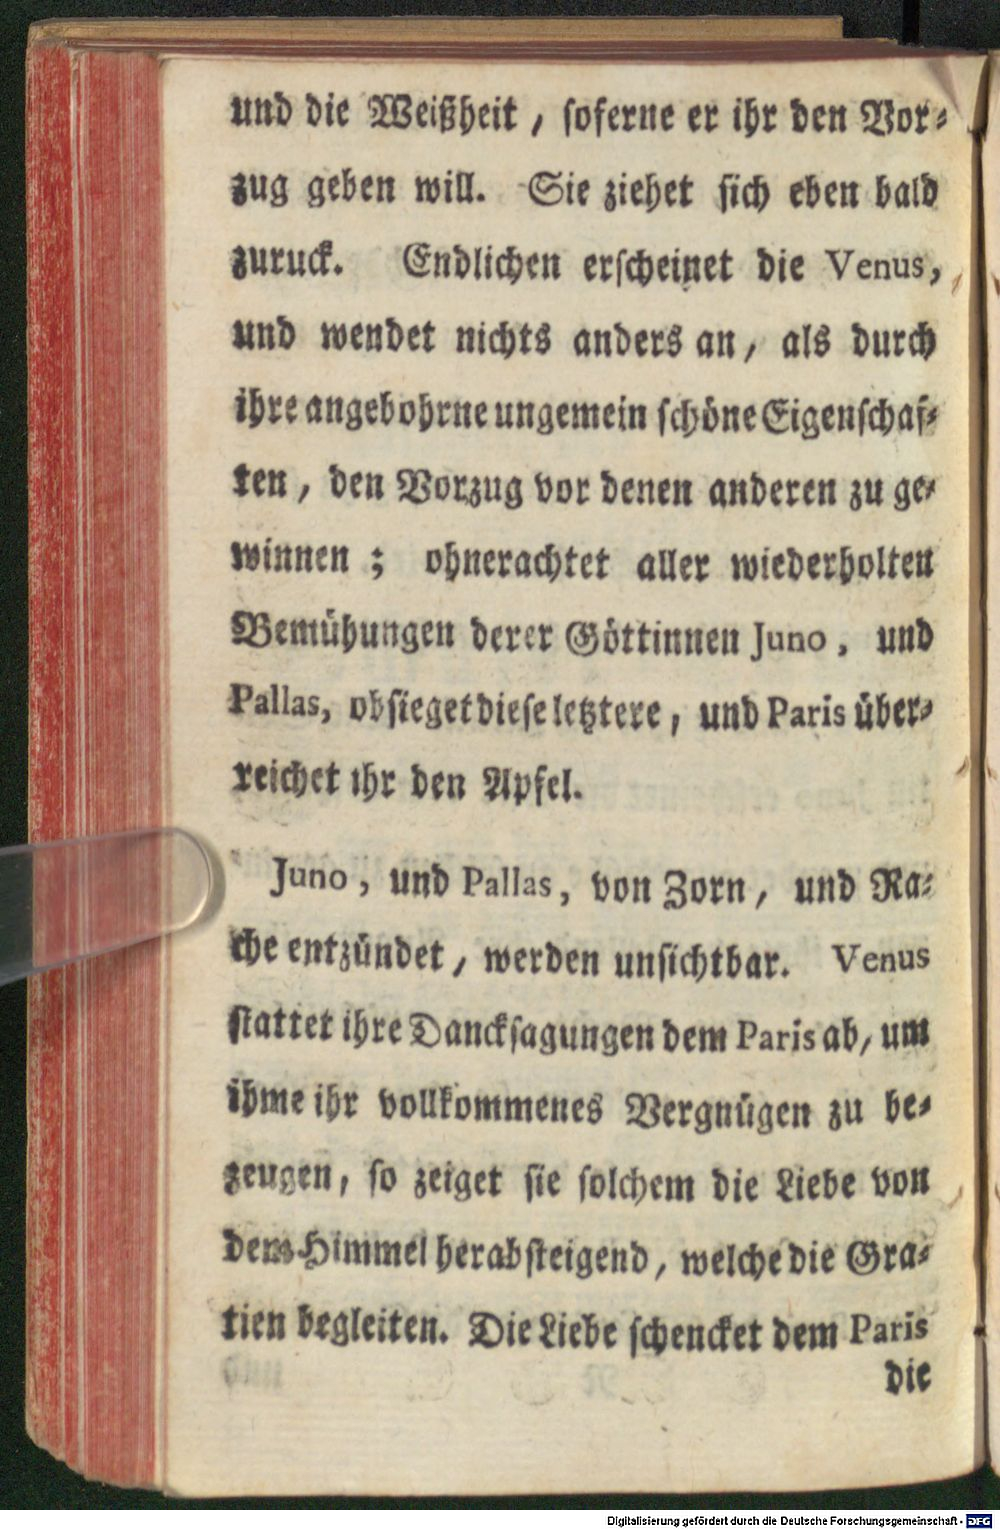 und die Weißheit, soferne er ihr den Vor-
zug geben will. Sie ziehet sich eben bald
zuruck. Endlichen erscheinet die Venus,
und wendet nichts anders an, als durch
ihre angebohrne ungemein schöne Eigenschaf-
ten, den Vorzug vor denen anderen zu ge-
winnen; ohnerachtet aller wiederholten
Bemühungen derer Göttinnen Juno, und
Pallas, obsieget diese letztere, und Paris über-
reichet ihr den Apfel.
Juno, und Pallas, von Zorn, und Ra-
che entzündet, werden unsichtbar. Venus
stattet ihre Dancksagungen dem Paris ab, um
ihme ihr vollkommenes Vergnügen zu be-
zeugen, so zeiget sie solchem die Liebe von
dem Himmel herabsteigend, welche die Gra-
tien begleiten. Die Liebe schencket dem Paris
die
Digitalisierung gefördert durch die Deutsche Forschungsgemeinschaft - DFG